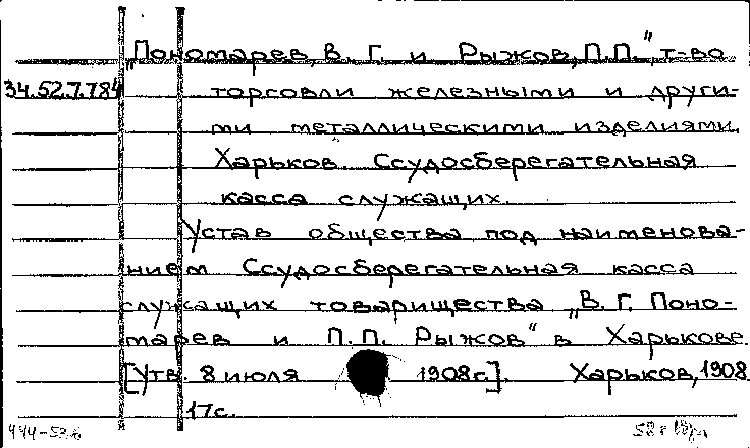 „Пономарев, В. Г. и Рыжов, П.П.", т-во
34.52.7.784 торговли железными и други-
ми металлическими изделиями,
Харьков. Ссудосберегательная
касса служащих.
Устав общества под наименова-
нием Ссудосберегательная касса
служащих товарищества „В. Г. Поно-
марев и П.П. Рыжов" в Харькове.
[Утв. 8 июля 1908г.]. Харьков, 1908
17с.